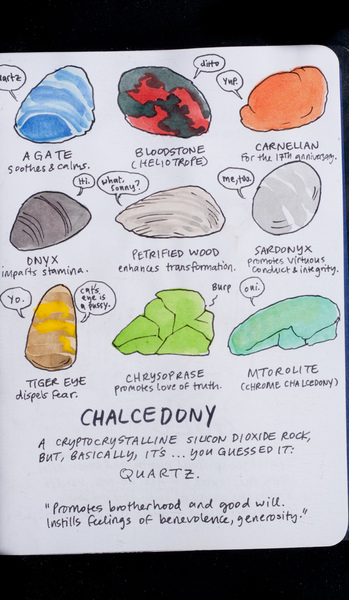 uartz
ditto
yup.
AGATE
soothes & calms.
BLOODSTONE
(HELIOTROPE)
CARNELIAN
For the 17th anniversary.
Hi.
what,
sonny?
me, too.
ONYX
imparts stamina.
PETRIFIED WOOD
enhances transformation.
SARDONYX
promotes virtuous
conduct & integrity.
Yo.
cat's
eye is
a pussy.
Burp
oni.
TIGER EYE
dispels fear.
CHRYSOPRASE
promotes love of truth.
MTOROLITE
(CHROME CHALCEDONY)
CHALCEDONY
A CRYPTOCRYSTALLINE SILICON DIOXIDE ROCK,
BUT, BASICALLY, IT'S ... YOU GUESSED IT:
QUARTZ.
"Promotes brotherhood and good will.
Instills feelings of benevolence, generosity."